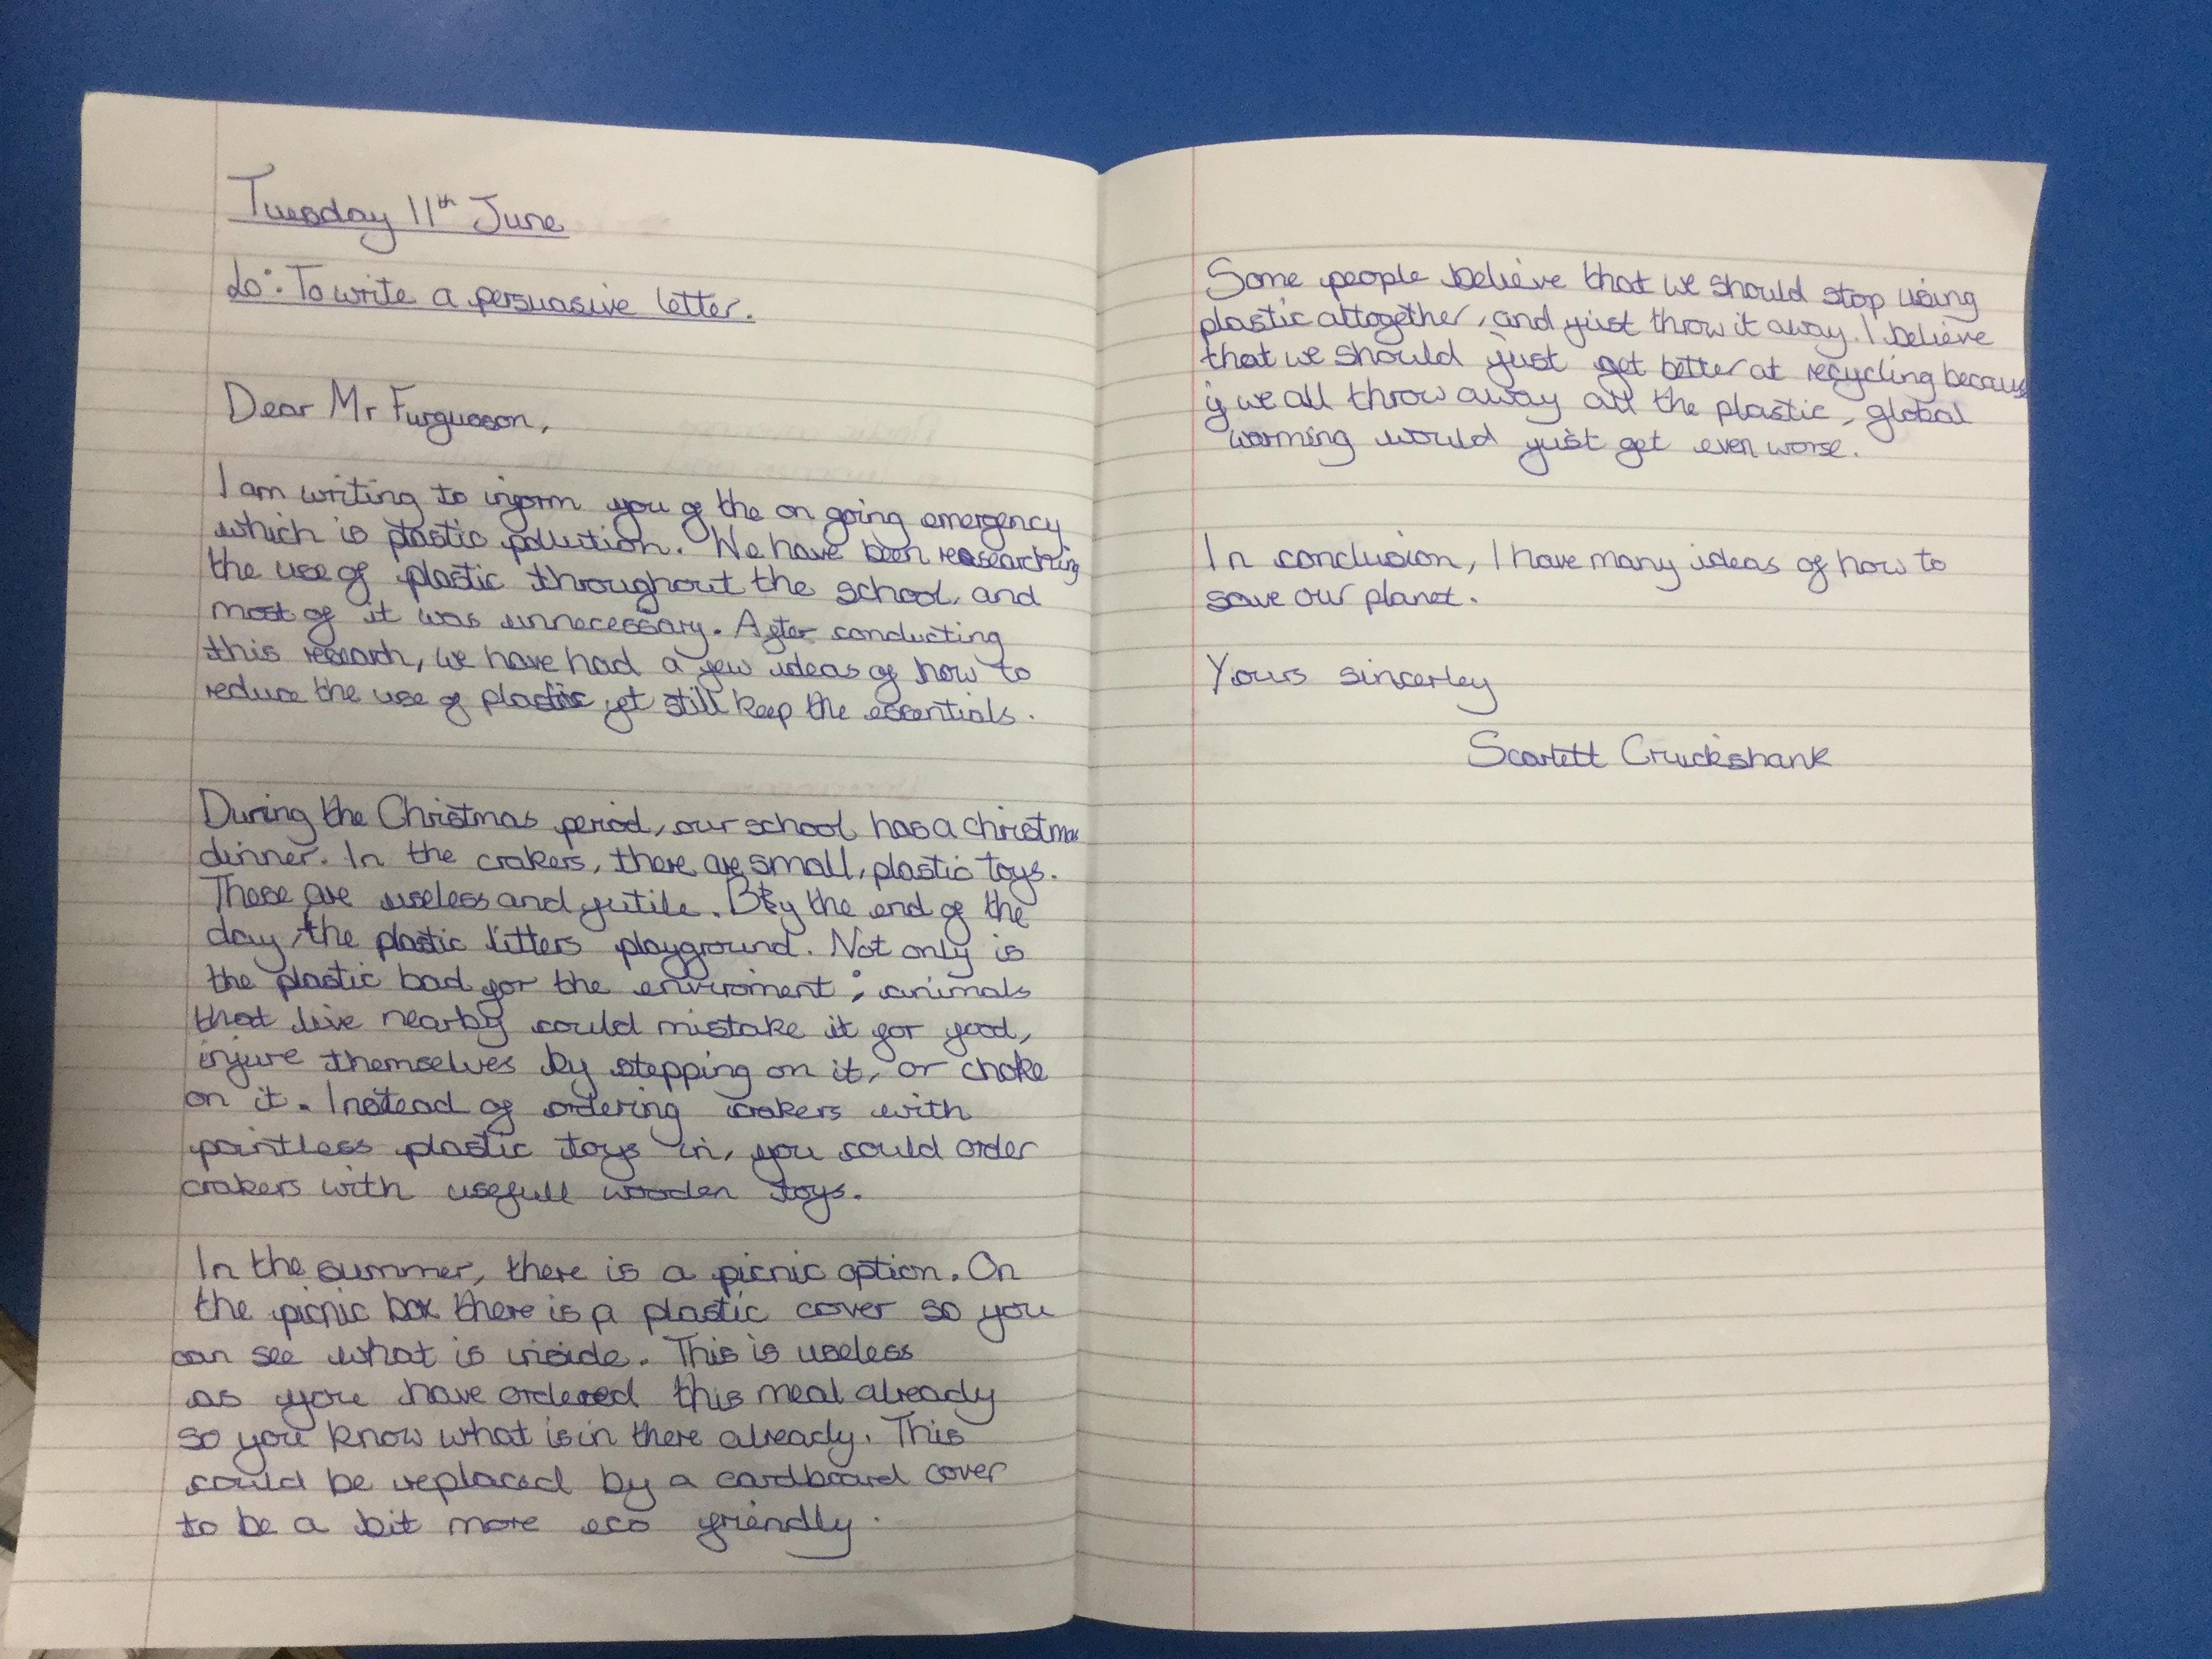 Tuesday 11th June
Lo: To write a persuasive letter.
Dear Mr Furgusson,
I am writing to inform you of the on going emergency
which is plastic pollution. We have been researching
the use of plastic throughout the school, and
most of it was unnecessary. After conducting
this research, we have had a few ideas of how to
reduce the use of plastic yet still keep the essentials.
During the Christmas period, our school has a christmas
dinner. In the crakers, there are small, plastic toys.
These are useless and futile. By the end of the
day, the plastic litters playground. Not only is
the plastic bad for the enviroment; animals
that live nearby could mistake it for food,
injure themselves by stepping on it, or choke
on it. Instead of ordering crakers with
pointless plastic toys in, you could order
crakers with usefull wooden toys.
In the summer, there is a picnic option. On
the picnic box there is a plastic cover so you
can see what is inside. This is useless
as you have ordered this meal already
so you know what is in there already. This
could be replaced by a cardboard cover
to be a bit more eco friendly.
Some people believe that we should stop using
plastic altogether, and just throw it away. I believe
that we should just get better at recycling because
if we all throw away all the plastic, global
warming would just get even worse.
In conclusion, I have many ideas of how to
save our planet.
Yours sincerley
Scarlett Cruickshank